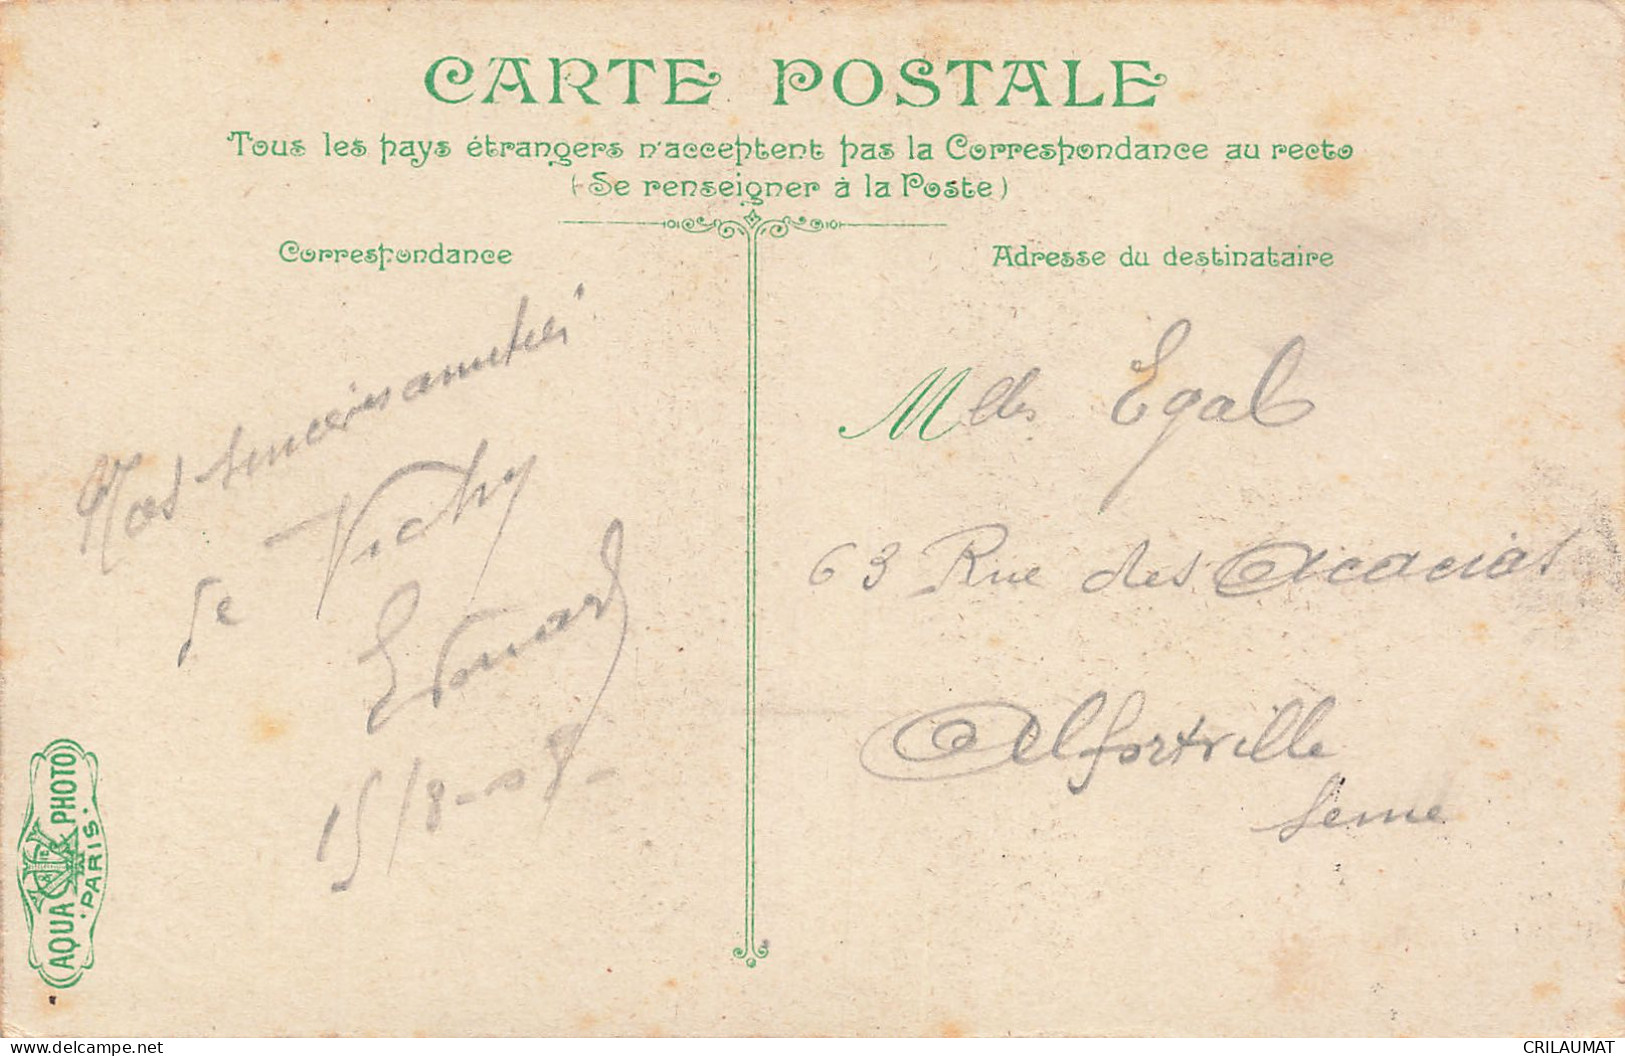 CARTE POSTALE
Tous les pays étrangers n'acceptent pas la Correspondance au recto
(Se renseigner à la Poste)
Correspondance
Nos sincères amitiés
de Vichy
Edouard
15/8-08-
Adresse du destinataire
Mlles Egal
63 Rue des Acacias
Alfortville
Seine
AQUA PHOTO
PARIS
CRILAUMAT
delcampe.net